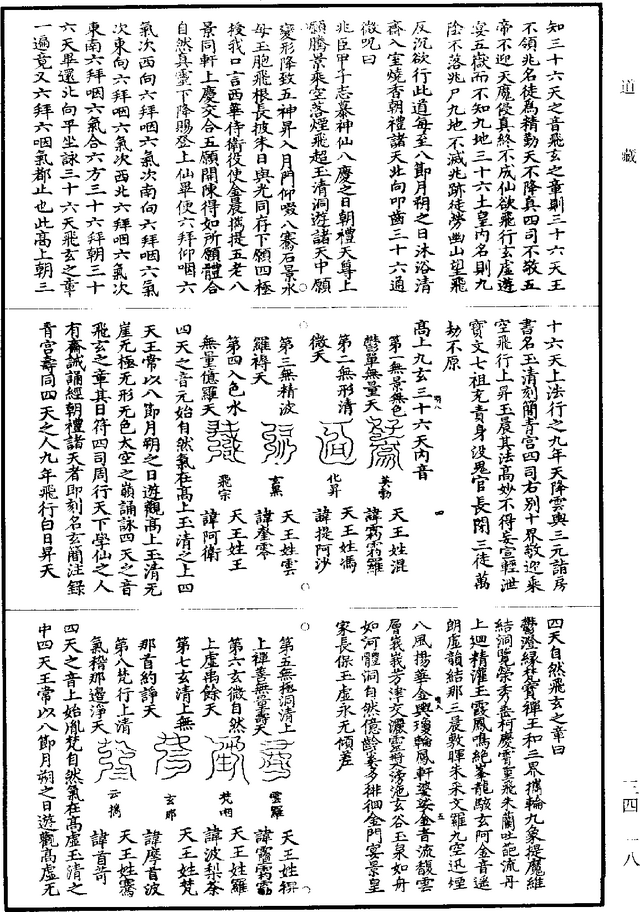 道藏
知三十六天之音飛玄之章則三十六天王
不領兆名徒為精勤天不降真四司不敬五
帝不迎天魔侵真終不成仙欲飛行玄虛遊
宴五嶽而不知九地三十六土皇內名則九
陰不落兆尸九地不滅兆跡徒勞幽山望飛
反沉欲行此道每至八節月朔之日沐浴清
齋入室燒香朝禮諸天北向叩齒三十六通
微呪曰
兆臣甲子志慕神仙八慶之日朝禮天尊上
願騰景乘空落煙飛超玉清洞遊諸天中願
變形降致五神昇入月門仰啜八騫石景水
母玉胞飛根長披朱日與光同存下願四極
授我口言西華侍衛役使金晨攜提五老八
景同軒上慶交合五願開陳得如所願體合
自然真靈下降賜登上仙畢便六拜仰咽六
氣次西向六拜咽六氣次南向六拜咽六氣
次東向六拜咽六氣次西北六拜咽六氣次
東南六拜咽六氣合六方三十六拜朝三十
六天畢還北向平坐詠三十六天飛玄之章
一遍竟又六拜六咽氣都止也此高上朝三
十六天上法行之九年天降雲輿三元詣房
書名玉清刻簡青宮四司右別十界敬迎乘
空飛行上昇玉晨其法高妙不得妄宣輕泄
寶文七祖充責身沒鬼官長閉三徒萬
劫不原
高上九玄三十六天內音
第一無景無色
鬱單無量天
英勃
天王姓混
諱霐霐羅
第二無形清
微天
化昇
天王姓馮
諱提阿沙
第三無精波
羅褥天
玄黑
天王姓雲
諱霐零
第四入色水
無量億羅天
飛宗
天王姓王
諱阿衛
四天之音元始自然氣在高上玉清之上四
天王常以八節月朔之日遊觀高上玉清无
崖无極无形无色太空之嶺誦詠四天之音
飛玄之章其日符四司周行天下學仙之人
有齋誠誦經朝禮諸天者即刻名玄簡注錄
青宮壽同四天之人九年飛行白日昇天
四天自然飛玄之章曰
鬱澄緣梵寶禪王和三界攜輪九象提魔維
結洞覽榮秀垂柯慶霄重飛朱蘭吐葩流丹
上迴精灌玉露鳳鳴絕峯龍駭玄阿金音遙
朗虛韻結那三晨敷暉朱采文羅九空迅煙
八風揚華金輿瓊輪鳳軒婆娑金音流馥雲
層峩峩芳津交灑靈嚮滂沲玄谷玉泉如舟
如河體洞自然億齡㒹多徘徊金門宴景皇
家長保玉虛永无傾差
第五無極洞清上
上禪善無量壽天
雲羅
天王姓㮛
諱霐霐霐
第六玄微自然
上虛禹餘天
梵㖡
天王姓羅
諱波梨荼
第七玄清上無
那首約諍天
玄那
天王姓梵
諱摩首波
第八梵行上清
氣稽那邊淨天
云攜
天王姓騫
諱首苛
四天之音上始胤梵自然氣在高虛玉清之
中四天王常以八節月朔之日遊觀高虛无
三四 一八